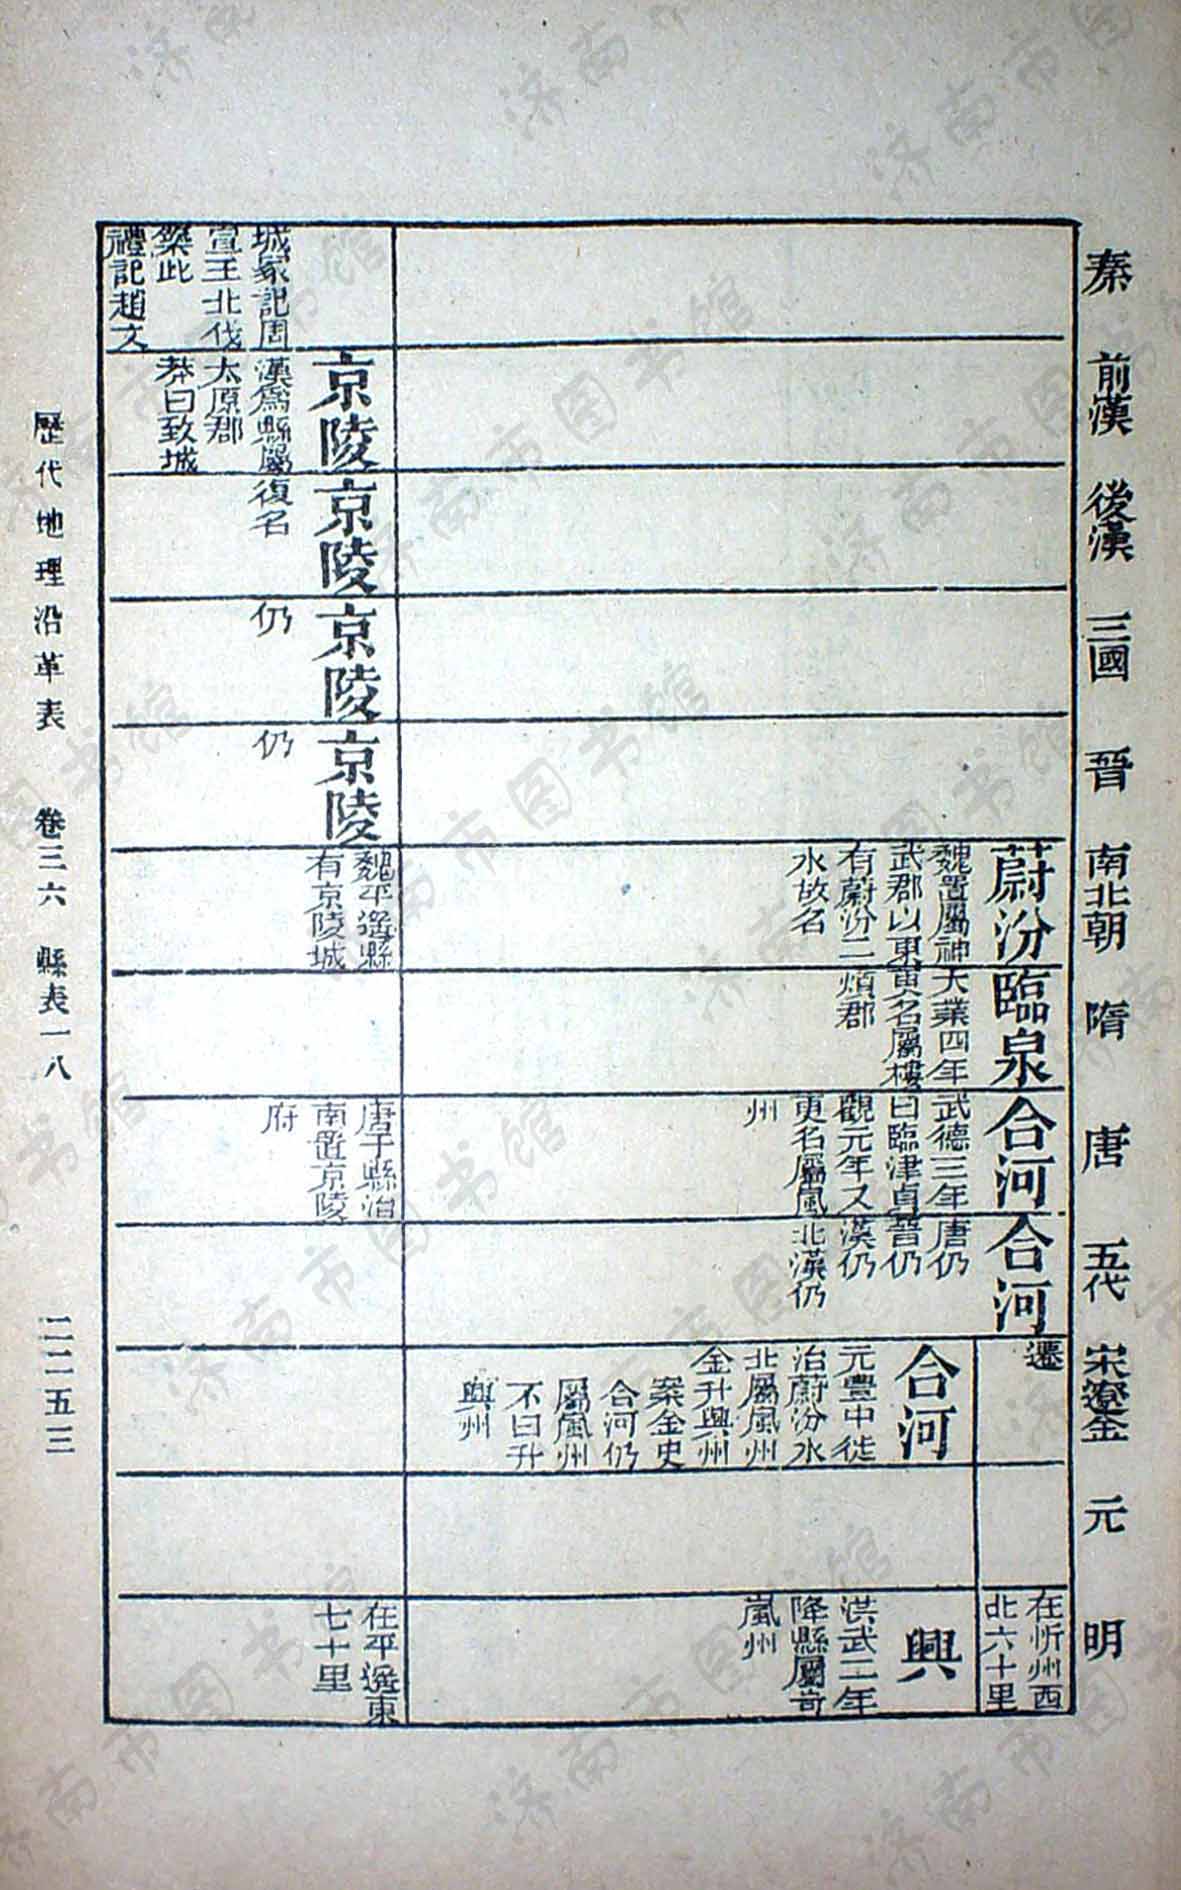 秦
前漢
後漢
三國
晉
南北朝
隋
唐
五代
宋遼金
元
明
遷
在忻州西
北六十里
蔚汾
魏置屬神
武郡以東
有蔚汾二
水故名
臨泉
大業四年
更名屬樓
煩郡
合河
武德三年
曰臨津貞
觀元年又
更名屬嵐
州
合河
唐仍
晉仍
漢仍
北漢仍
合河
元豐中徙
治蔚汾水
北屬嵐州
金升興州
案金史
合河仍
屬嵐州
不曰升
興州
興
洪武二年
降縣屬岢
嵐州
城冢記周
宣王北伐
築此
禮記趙文
京陵
漢爲縣屬
太原郡
莽曰致城
京陵
復名
京陵
仍
京陵
仍
魏平遙縣
有京陵城
唐于縣治
南置京陵
府
在平遙東
七十里
歷代地理沿革表
卷三六
縣表一八
二二五三
济南市图书馆